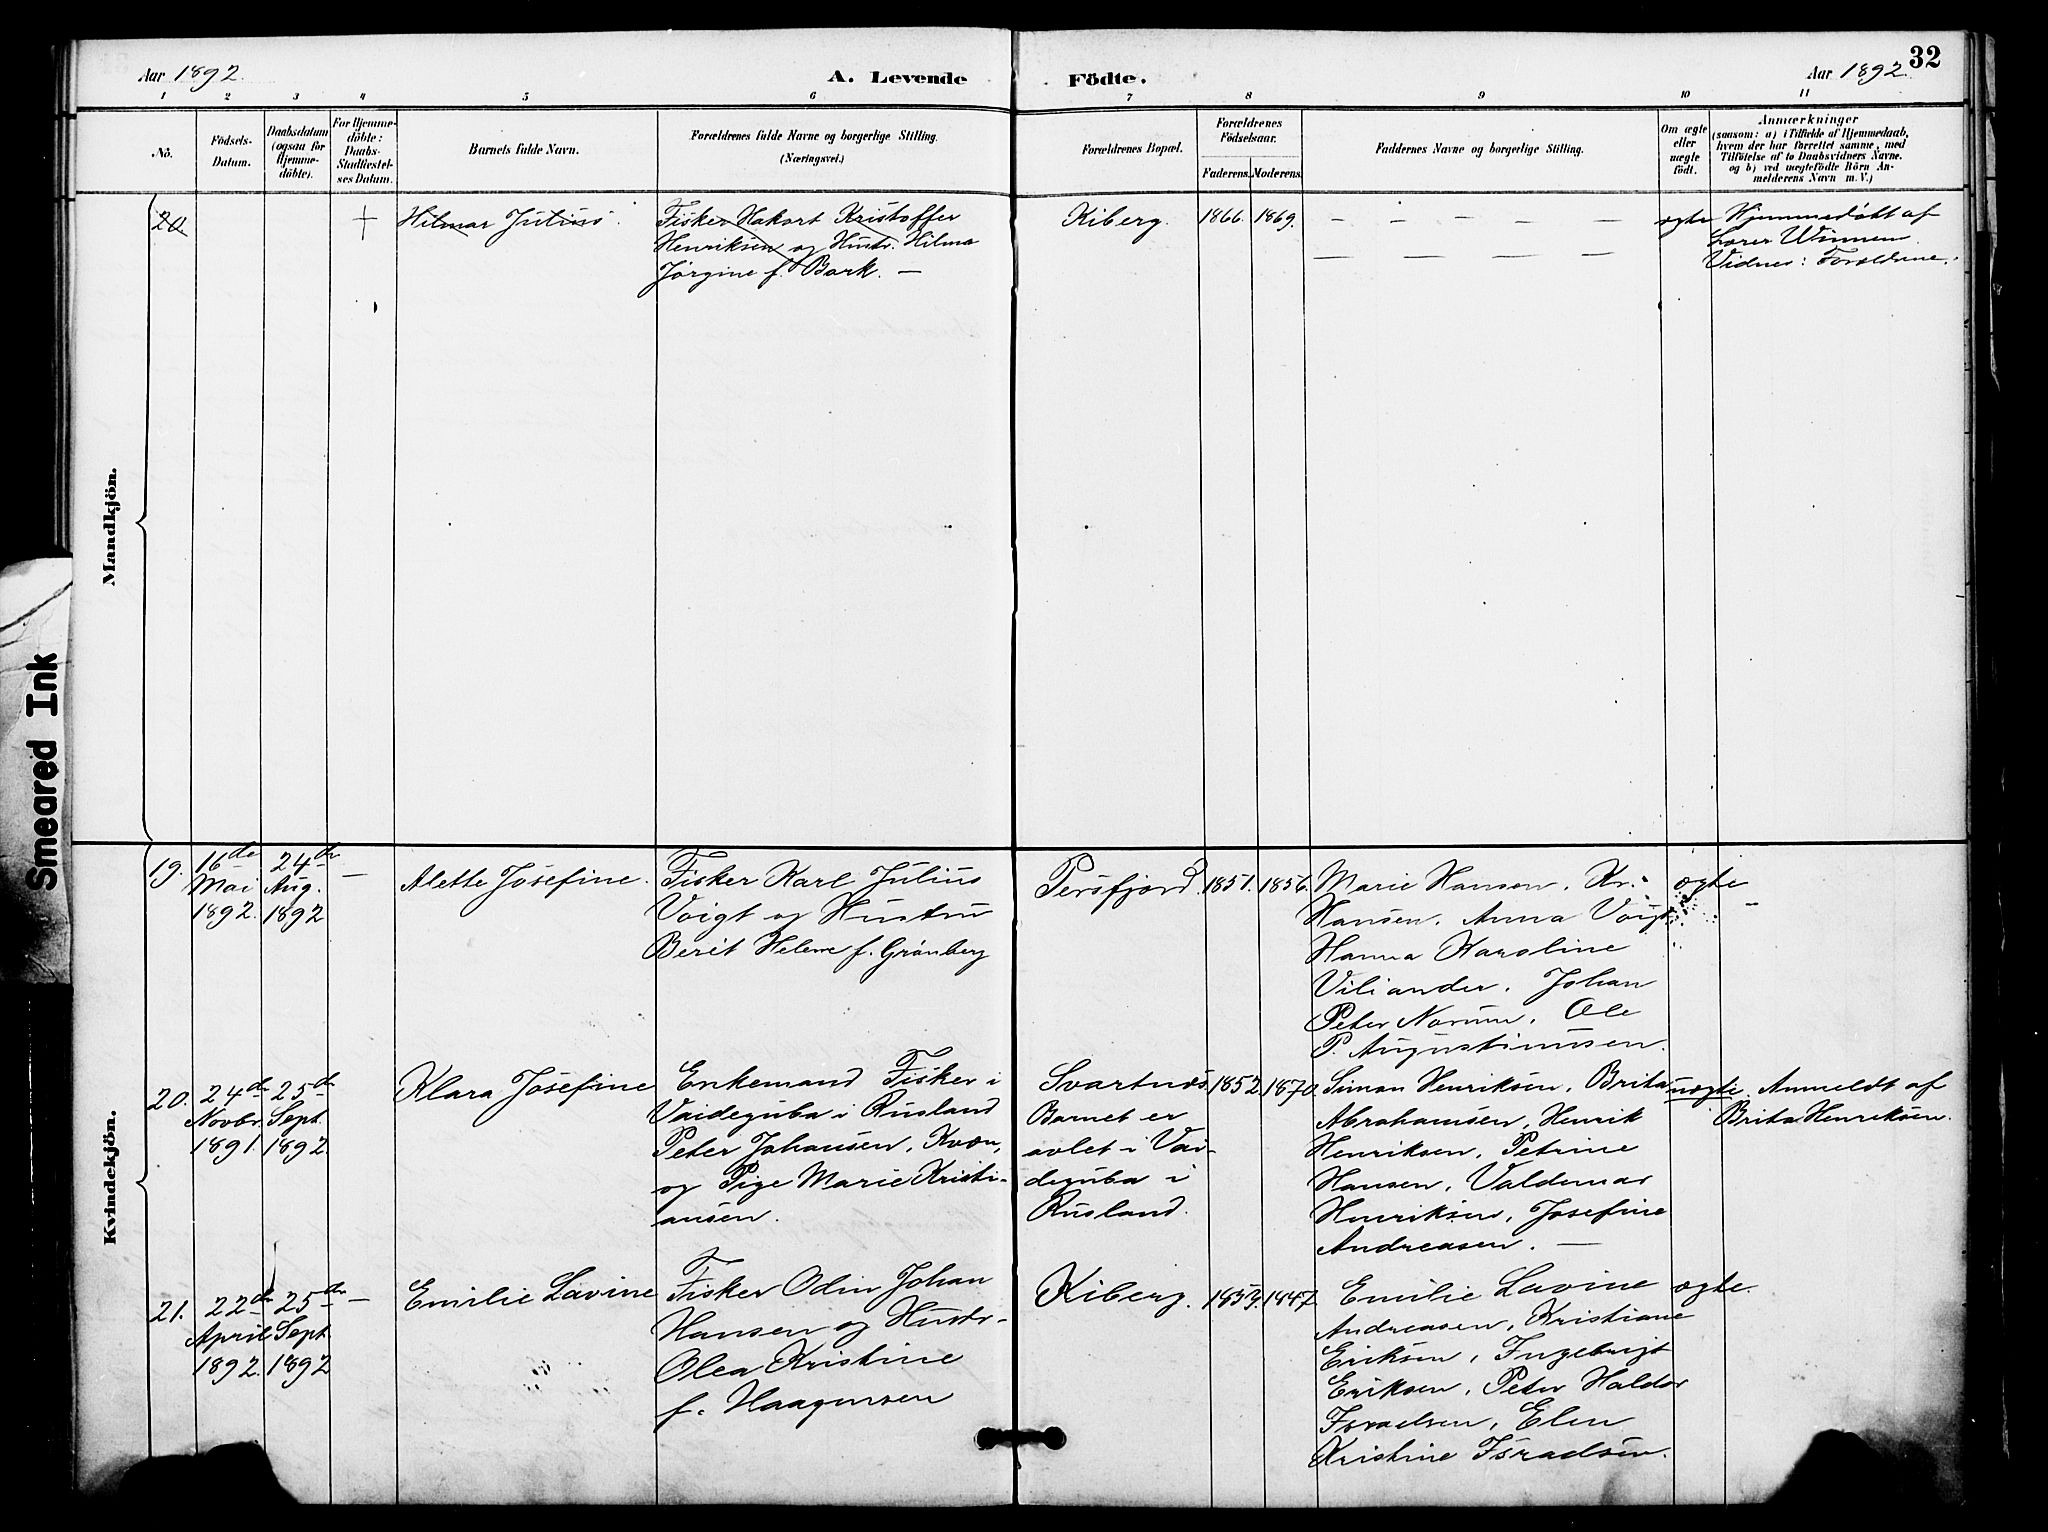 Aar 1892.
A. Levende Födte.
Aar 1892.
32
1 2 3 4 5 6 7 8 9 10 11
No.
Födsels-
Datum.
Daabsdatum
(ogsaa for
Hjemme-
döbte).
For Hjemme-
döbte:
Daabs-
Stadfæstel-
ses Datum.
Barnets fulde Navn.
Forældrenes fulde Navne og borgerlige Stilling.
(Næringsvei.)
Forældrenes Bopæl.
Forældrenes
Födselsaar.
Faderens. Moderens.
Faddernes Navne og borgerlige Stilling.
Om ægte
eller
uægte
födt.
Anmærkninger
(saasom: a) i Tilfælde af Hjemmedaab,
hvem der har forrettet samme, med
Tilföielse af to Daabsvidners Navne.
og b) ved uægtefödte Börn An-
melderens Navn m. V.)
Mandkjön.
20.
†
Hilmar Julius.
Fisker Hakart Kristoffer
Henriksen og Hustr. Hilma
Jørgine f. Bark. —
Kiberg.
1866. 1869.
— — — — —
— — — —
ægte
Hjemmedøbt af
Lærer Winnem.
Vidner: Forældrene.
Kvindekjön.
19.
16de
Mai
1892.
24de
Aug.
1892
—
Alette Josefine.
Fisker Karl Julius
Voigt og Hustru
Berit Helene f. Grønberg
Persfjord.
1851. 1856.
Marie Hansen, Kr.
Hansen, Anna Voigt,
Hanna Karoline
Viliander, Johan
Peter Norum, Ole
P. Augustinusen.
ægte
–
20.
24de
Novbr.
1891.
25de
Sept.
1892.
Klara Josefine
Enkemand Fisker i
Vaideguba i Rusland
Peter Johansen, Kvæn,
og Pige Marie Kristi-
ansen.
Svartnæs.
Barnet er
avlet i Vai-
deguba i
Rusland.
1852. 1870.
Simon Henriksen, Brita
Abrahamsen, Henrik
Henriksen, Petrine
Hansen, Valdemar
Henriksen, Josefine
Andreasen. —
uægte.
Anmeldt af
Brita Henriksen.
21.
22de
April
1892.
25de
Sept.
1892
—
Emilie Lavine
Fisker Odin Johan
Hansen og Hustr.
Olea Kristine
f. Haagensen
Kiberg.
1847
Emilie Lavine
Andreasen, Kristiane
Eriksen, Ingebrigt
Eriksen, Peter Haldor
Israelsen, Elen
Kristine Israelsen.
ægte.
Smeared Ink